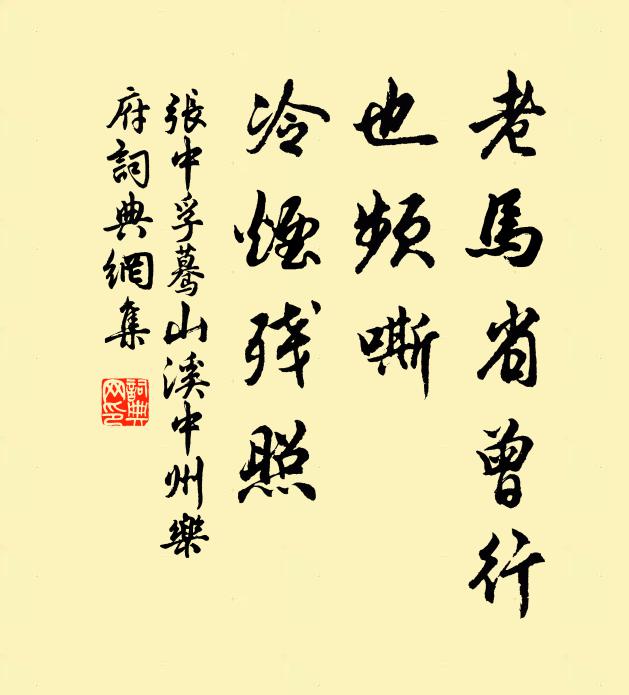 老馬省曾行
也頻嘶
冷煙残照
張中孚驀山溪中州樂
府詞典網集
詞典
网印